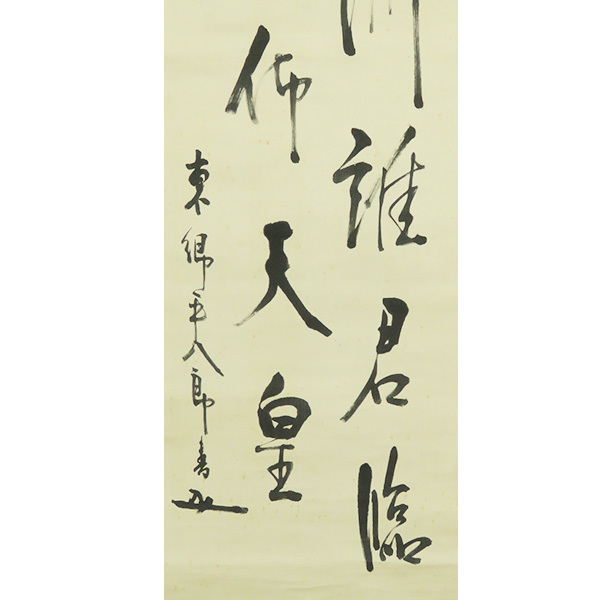 誰君臨
仰天皇
東郷平八郎書